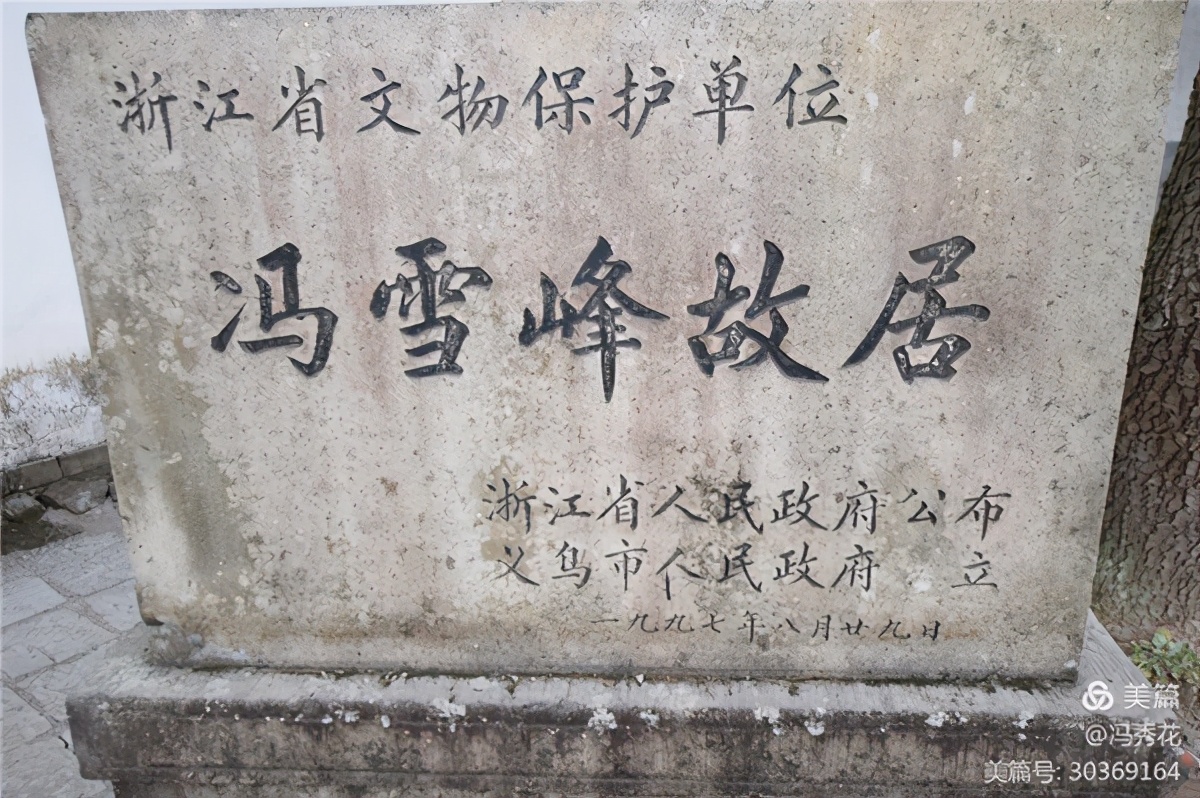 浙江省文物保护单位
冯雪峰故居
浙江省人民政府公布
义乌市人民政府 立
一九九七年八月廿九日
美篇
@冯秀花
美篇号: 30369164